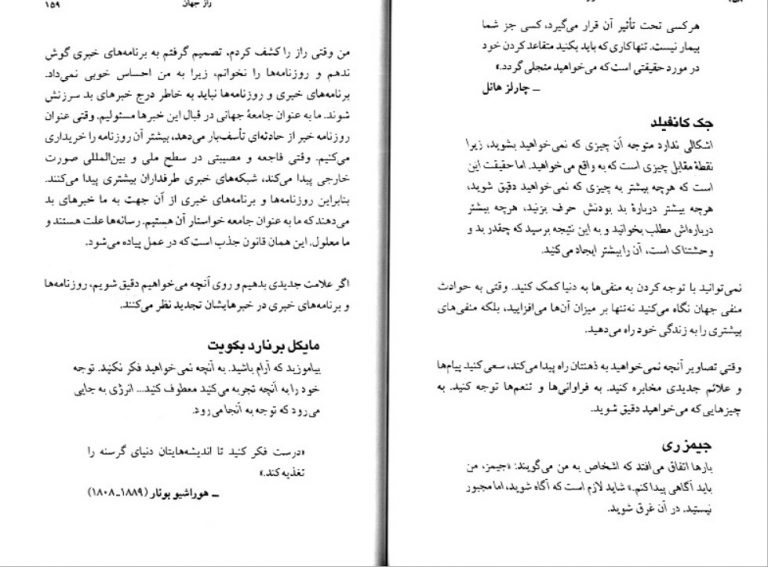 هرکسی تحت تأثیر آن قرار می‌گیرد، کسی جز شما
بیمار نیست. تنها کاری که باید بکنید متقاعد کردن خود
در مورد حقیقتی است که می‌خواهید متجلی گردد.»
ــ چارلز هانل
جک کانفیلد
اشکالی ندارد متوجه آن چیزی که نمی‌خواهید بشوید، زیرا
نقطهٔ مقابل چیزی است که به واقع می‌خواهید. اما حقیقت این
است که هرچه بیشتر به چیزی که نمی‌خواهید دقیق شوید،
هرچه بیشتر دربارهٔ بد بودنش حرف بزنید، هرچه بیشتر
درباره‌اش مطلب بخوانید و به این نتیجه برسید که چقدر بد و
وحشتناک است، آن را بیشتر ایجاد می‌کنید.
نمی‌توانید با توجه کردن به منفی‌ها به دنیا کمک کنید. وقتی به حوادث
منفی جهان نگاه می‌کنید نه‌تنها بر میزان آن‌ها می‌افزایید، بلکه منفی‌های
بیشتری را به زندگی خود راه می‌دهید.
وقتی تصاویر آنچه نمی‌خواهید به ذهنتان راه پیدا می‌کند، سعی کنید پیام‌ها
و علائم جدیدی مخابره کنید. به فراوانی‌ها و تنعم‌ها توجه کنید. به
چیزهایی که می‌خواهید دقیق شوید.
جیمز ری
بارها اتفاق می‌افتد که اشخاص به من می‌گویند: «جیمز، من
باید آگاهی پیدا کنم.» شاید لازم است که آگاه شوید، اما مجبور
نیستید. در آن غرق شوید.
راز جهان ۱۵۹
من وقتی راز را کشف کردم، تصمیم گرفتم به برنامه‌های خبری گوش
ندهم و روزنامه‌ها را نخوانم، زیرا به من احساس خوبی نمی‌داد.
برنامه‌های خبری و روزنامه‌ها نباید به خاطر درج خبرهای بد سرزنش
شوند. ما به عنوان جامعهٔ جهانی در قبال این خبرها مسئولیم. وقتی عنوان
روزنامه خبر از حادثه‌ای تأسف‌بار می‌دهد، بیشتر آن روزنامه را خریداری
می‌کنیم. وقتی فاجعه و مصیبتی در سطح ملی و بین‌المللی صورت
خارجی پیدا می‌کند، شبکه‌های خبری طرفداران بیشتری پیدا می‌کنند.
بنابراین روزنامه‌ها و برنامه‌های خبری از آن جهت به ما خبرهای بد
می‌دهند که ما به عنوان جامعه خواستار آن هستیم. رسانه‌ها علت هستند و
ما معلول. این همان قانون جذب است که در عمل پیاده می‌شود.
اگر علامت جدیدی بدهیم و روی آنچه می‌خواهیم دقیق شویم، روزنامه‌ها
و برنامه‌های خبری در خبرهایشان تجدید نظر می‌کنند.
مایکل برنارد بکویت
بیاموزید که آرام باشید. به آنچه نمی‌خواهید فکر نکنید. توجه
خود را به آنچه تجربه می‌کنید معطوف کنید... انرژی به جایی
می‌رود که توجه به آنجا می‌رود.
«درست فکر کنید تا اندیشه‌هایتان دنیای گرسنه را
تغذیه کند.»
ــ هوراشیو بونار (۱۸۸۹ـ۱۸۰۸)